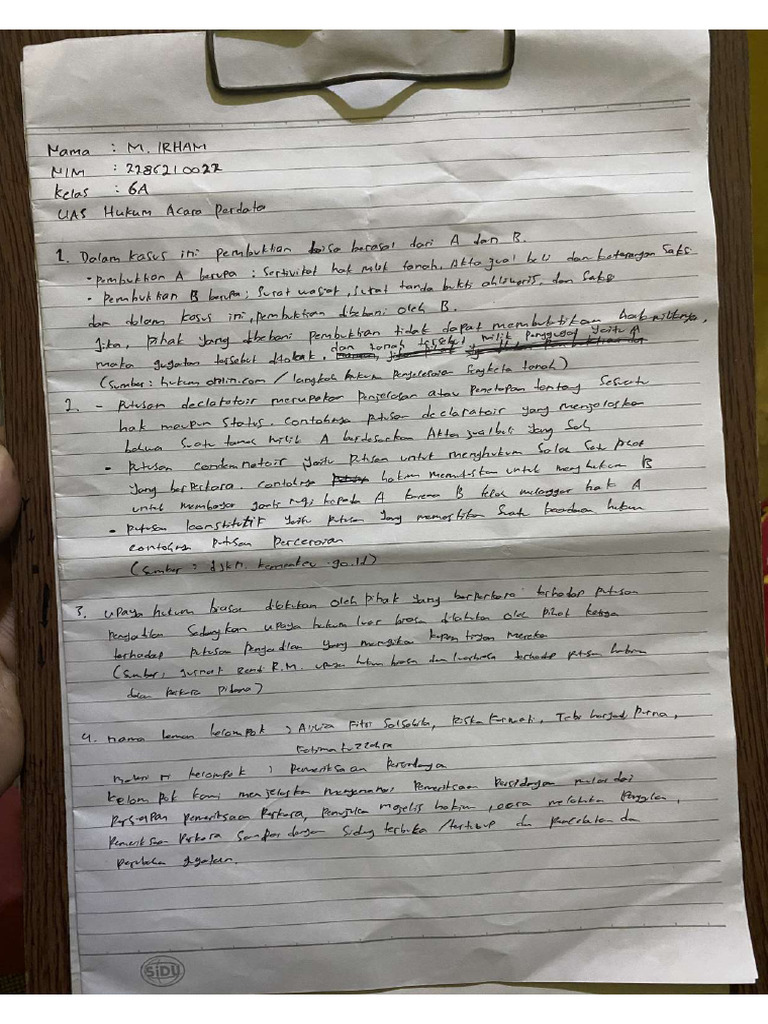 Nama : M. IRHAM
NIM : 2286210022
Kelas : 6A
UAS Hukum Acara Perdata
1. Dalam kasus ini pembuktian bisa berasal dari A dan B.
- Pembuktian A berupa : Sertivikat hak milik tanah, Akta jual beli dan keterangan Saksi
- Pembuktian B berupa : Surat wasiat, surat tanda bukti ahli waris, dan Saksi
dan dalam kasus ini, pembuktian dibebani oleh B.
Jika, pihak yang dibebani pembuktian tidak dapat membuktikan hak miliknya,
maka gugatan tersebut ditolak, dan tanah tersebut milik penggugat yaitu A
(Sumber : hukum online.com / langkah hukum Penyelesaian Sengketa tanah)
2. - Putusan declatatoir merupakan Penjelasan atau Penetapan tentang Sesuatu
hak maupun Status. Contohnya putusan declaratoir yang menjelaskan
bahwa Suatu tanah milik A berdasarkan Akta jual beli yang Sah
- Putusan condemnatoir yaitu Putusan untuk menghukum Salah Satu pihak
yang berperkara. Contohnya hakim memutuskan untuk menghukum B
untuk membayar ganti rugi kepada A karena B telah melanggar hak A
- Putusan konstitutif yaitu Putusan yang memastikan Suatu keadaan hukum
contohnya putusan Perceraian
(Sumber : djkn.kemenkeu.go.id)
3. Upaya hukum biasa dilakukan oleh pihak yang berperkara terhadap putusan
Pengadilan Sedangkan upaya hukum luar biasa dilakukan oleh pihak ketiga
terhadap Putusan Pengadilan yang merugikan kepentingan mereka
(Sumber, jurnal Rendi R.M. upaya hukum biasa dan luar biasa terhadap putusan hakim
dalam perkara Pidana)
4. nama teman kelompok : Fitri Salsabila, Riska
Fatimatuzzahra
materi kelompok : Pemeriksaan Persidangan
Kelompok kami menjelaskan mengenai Pemeriksaan Persidangan mulai dari
Persiapan pemeriksaan Perkara, Penunjukan majelis hakim, cara melakukan Panggilan,
Pemeriksaan Perkara Sampai dengan Sidang terbuka / tertutup dan pencabutan dan
perubahan gugatan.
SiDU